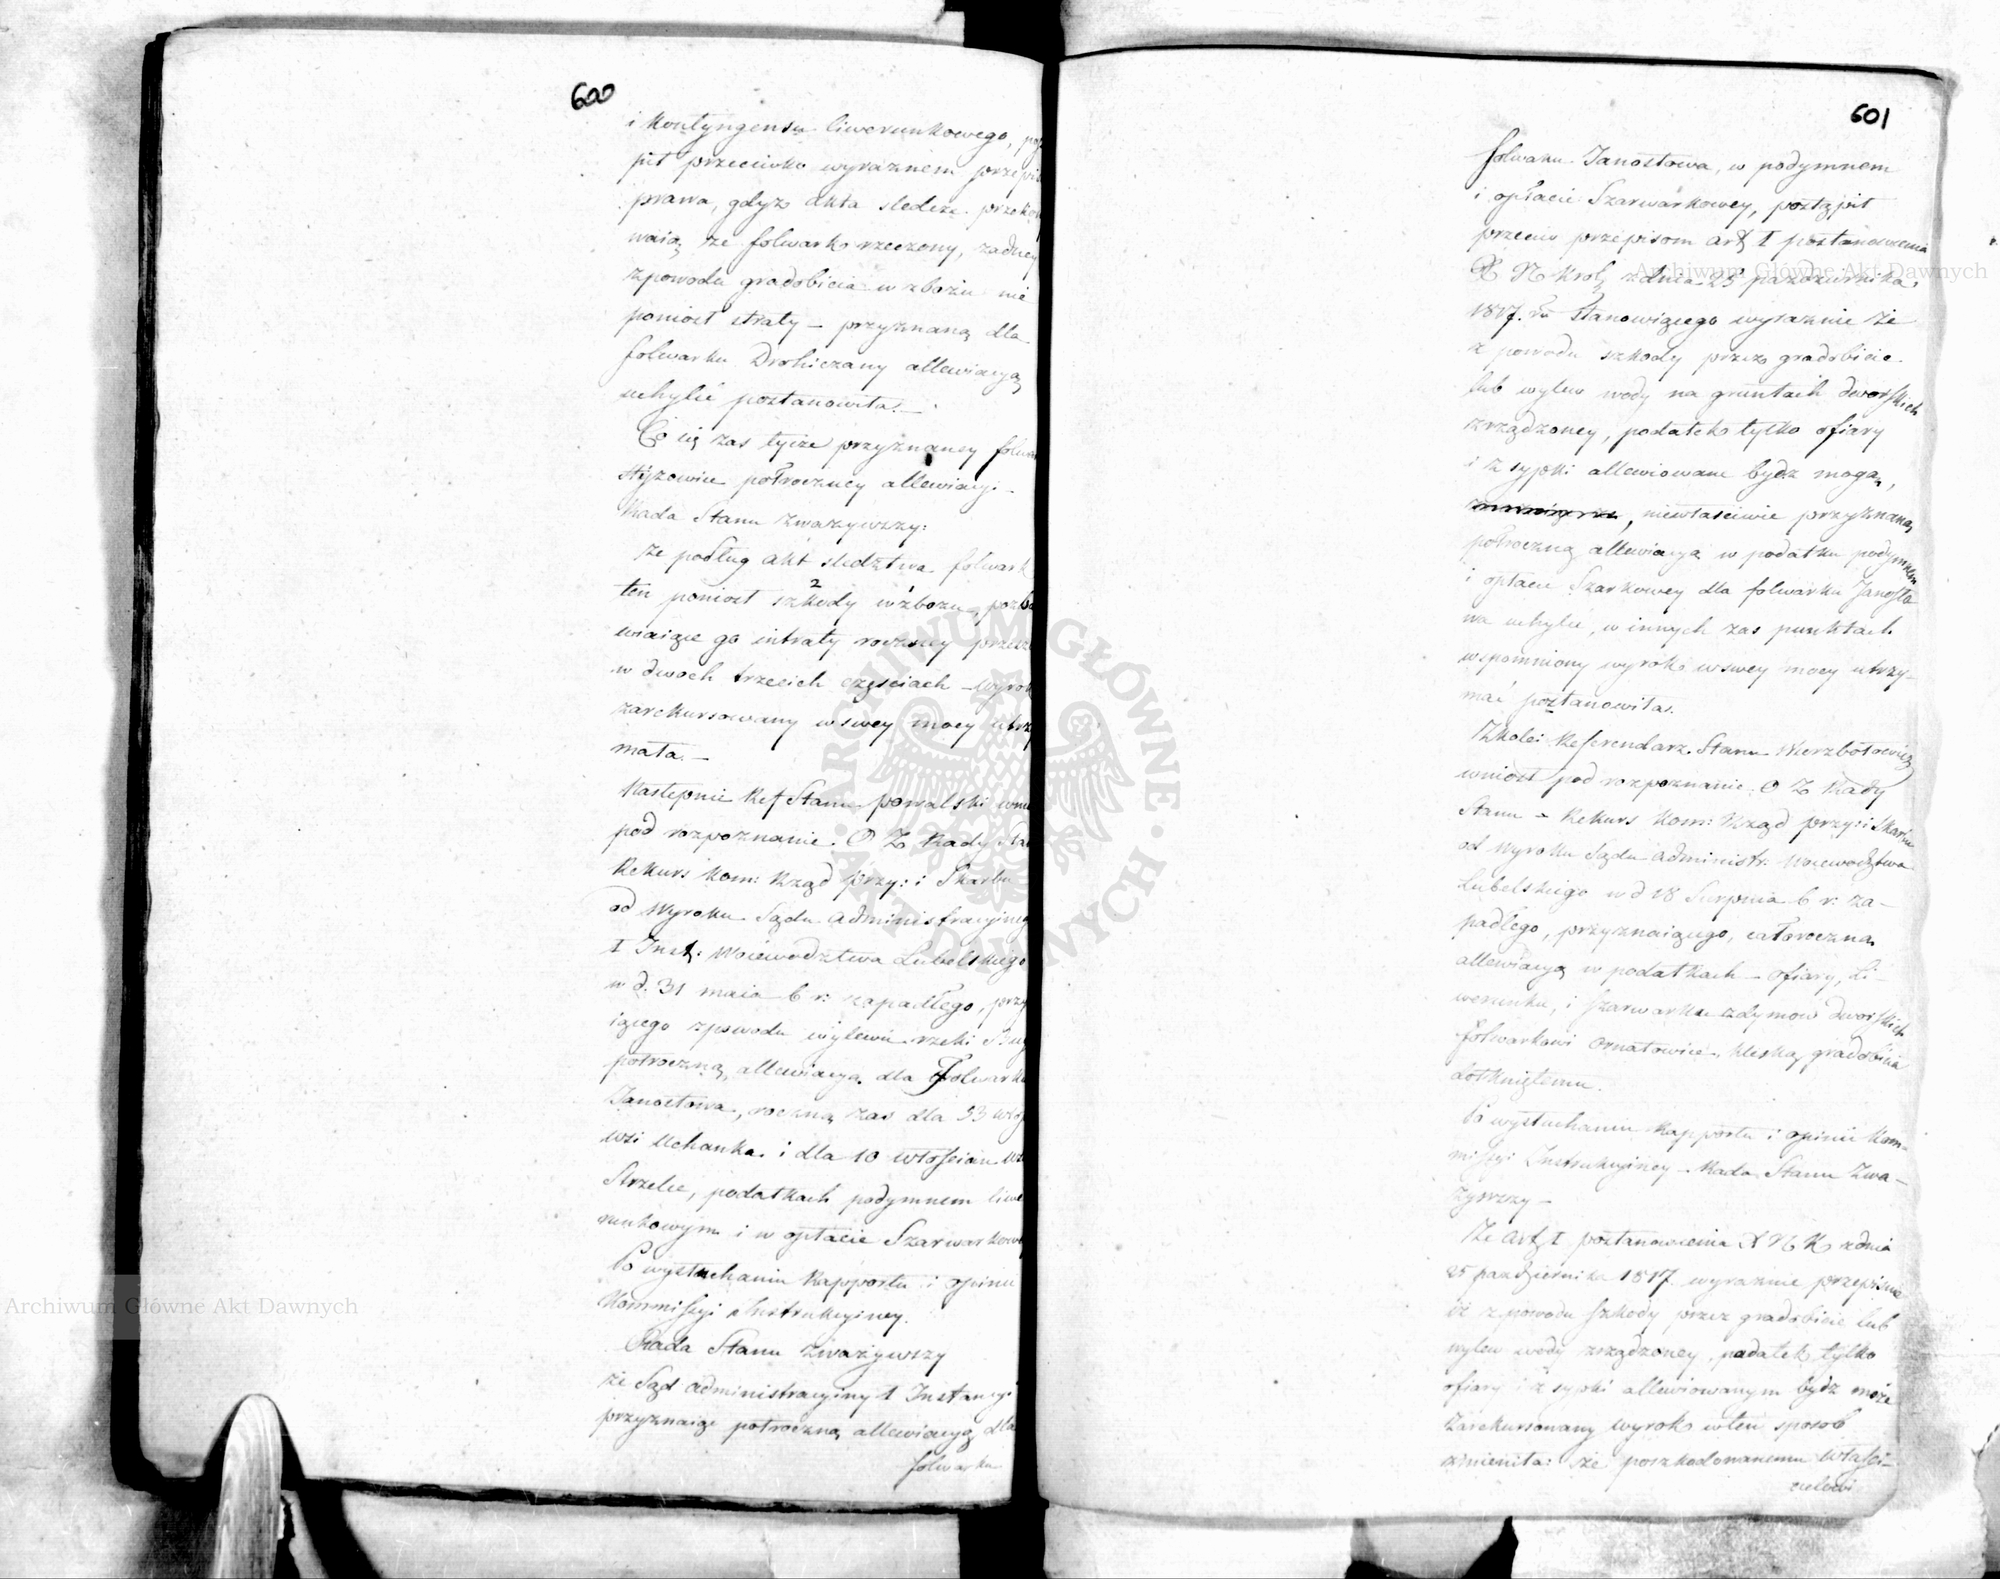 600
i kontyngensu liwerunkowego, pos
pił przeciwko wyraznem przepis
prawa, gdyz akta sledcze przeko
waią, ze folwark rzeczony, zadney
z powodu gradobicia w zbożu nie
poniost straty – przyznaną dla
folwarku Drohiczany allewiacyą
uchylić postanowiła. –
Co się zas tycze przyznaney folwa
Hyżowice połroczney allewiacyi –
Rada Stanu zwazywszy:
ze podług akt sledztwa folwark
ten poniost szkody w zbożu, pozba
wiaiące go intraty roczney przesz
w dwoch trzecich częsciach – wyrok
zarekursowany w swey mocy utrzy
mała. –
Następnie Ref Stanu powalski wnió
pod rozpoznanie O Z Rady Sta
Rekurs Kom: Rząd przy: i Skarbu
od Wyroku Sądu administracyineg
I Inst: Woiewodztwa Lubelskiego
w d. 31 maia b r: zapadłego, przy
iącego z powodu wylewu rzeki Bug
połroczną allewiacyą dla Folwarku
Janostowa, roczną zas dla 33 włoś
wsi Uchanka i dla 10 włoscian ws
Strzelce, podatkach podymnem liwe
runkowym i w opłacie Szarwarkowe
Po wysłuchaniu Rapportu i opinii
Kommissyi Instrukcyiney.
Rada Stanu zwazywszy
że Sąd administracyiny I Instancyi
przyznaiąc połroczną allewiacyą dla
folwarku
601
folwarku Janostowa, w podymnem
i opłacie Szarwarkowey, postąpił
przeciw przepisom art I postanowienia
X N Krolę z dnia 25 pazdziernika
1817. ru stanowiącego wyraznie że
z powodu szkody przez gradobicie
lub wylew wody na gruntach dworskich
zrządzoney, podatek tylko ofiary
i z sypki allewiowane bydz mogą,
, niewłasciwie przyznaną
połroczną allewiacyą w podatku podymnem
i opłacie Szarkowey dla folwarku Janosto
wa uchylić, w innych zas punktach
wspomniony wyrok w swey mocy utrzy-
mać postanowiła.
Zkolei Referendarz Stanu Wierzbołowicz
wniosł pod rozpoznanie O Z Rady
Stanu – Rekurs Kom: Rząd przy: i Skarbu
od Wyroku Sądu administr. Woiewodztwa
Lubelskiego w d 18 Sierpnia b r: za-
padłego, przyznaiącego, całoroczną
allewiacyą w podatkach – ofiary, li-
werunku, i szarwarku z dymow dworskich
folwarkowi Ornatowice, klęską gradobicia
dotkniętemu.
Po wysłuchaniu Rapportu i opinii Kom-
missyi Instrukcyiney – Rada Stanu Zwa-
zywszy –
Ze art I postanowienia X N K z dnia
25 pazdziernika 1817 wyraznie przepisuie
iż z powodu szkody przez gradobicie lub
wylew wody zrządzoney, podatek tylko
ofiary i z sypki allewiowanym bydz może
Zarekursowany wyrok w ten sposob
zmieniła: że poszkodowanemu własci-
cielowi
Archiwum Główne Akt Dawnych
Archiwum Główne Akt Dawnych
ARCHIWUM GŁÓWNE AKT DAWNYCH